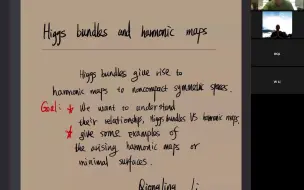 Higgs bundles and harmonic maps
Higgs bundles give rise to
harmonic maps to noncompact symmetric spaces.
Goal: * We want to understand
their relationship, Higgs bundles VS harmonic maps,
* give some examples of
the arising harmonic maps or
minimal surfaces.
Qiongling Li